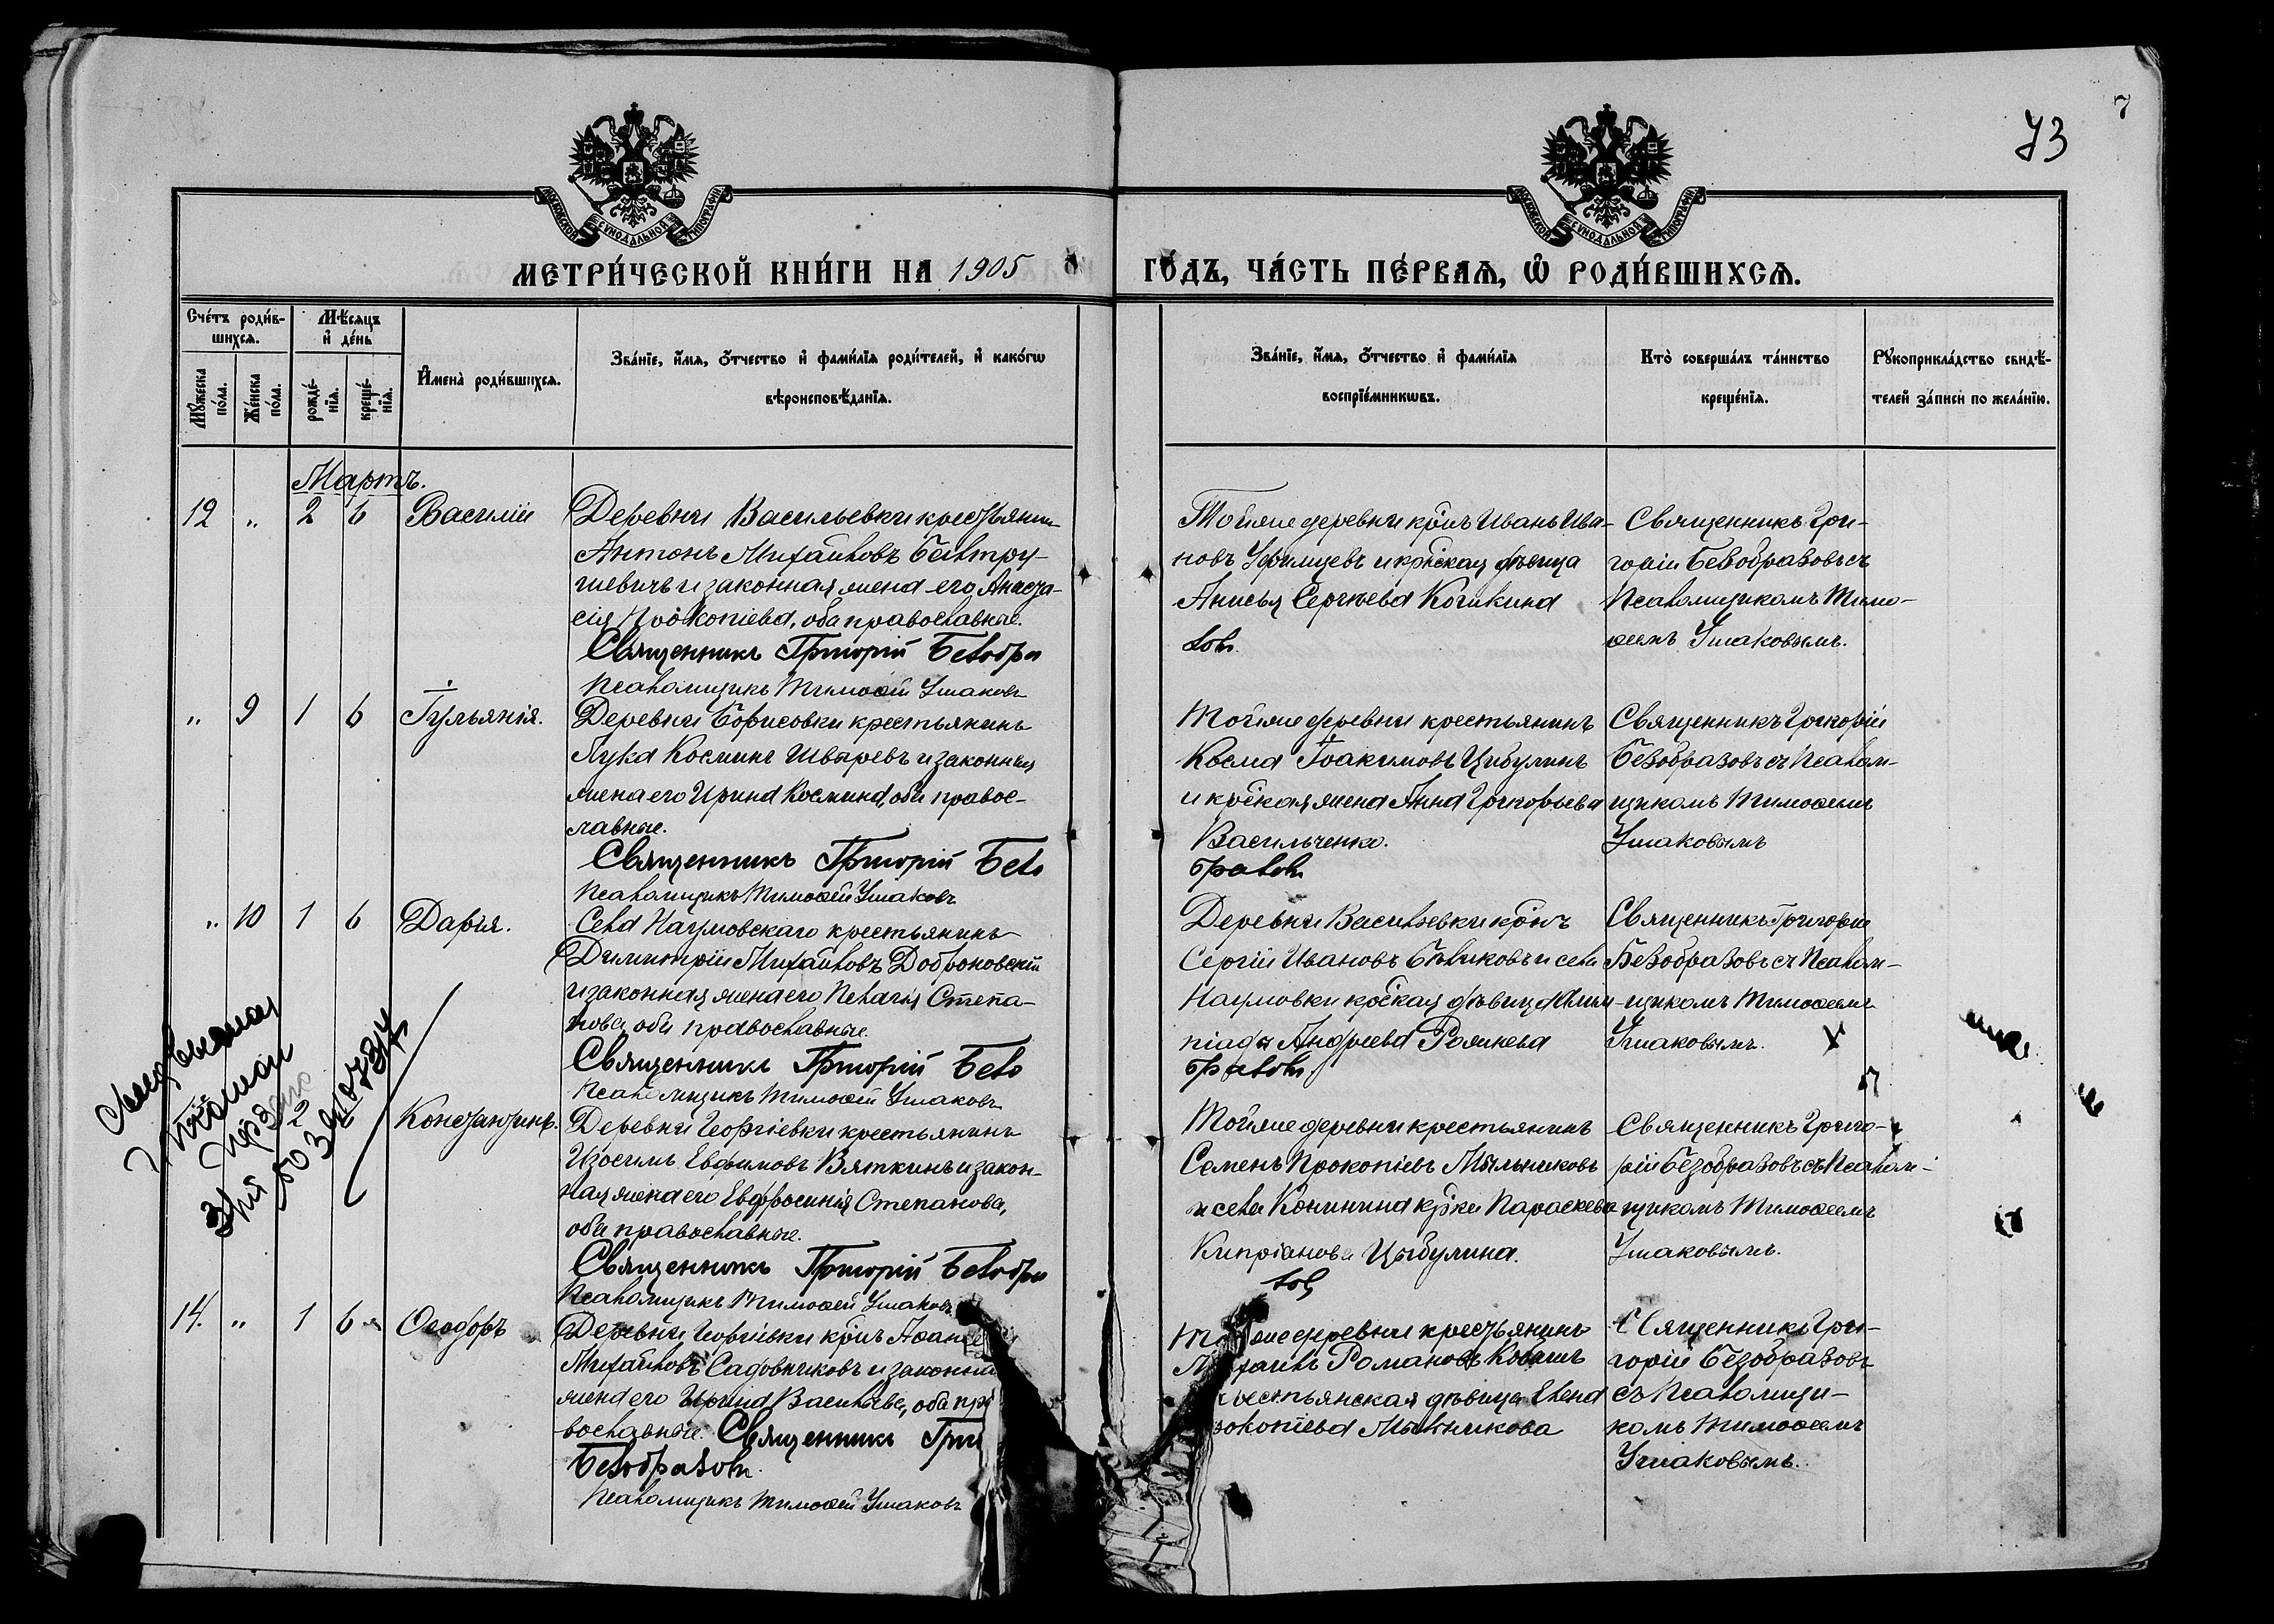 7
73
МОСКОВСКОЙ СУНОДАЛЬНОЙ ТИПОГРАФІИ
МОСКОВСКОЙ СУНОДАЛЬНОЙ ТИПОГРАФІИ
МЕТРИ́ЧЕСКОЙ КНИ́ГИ НА 1905 ГО́ДЪ, ЧА́СТЬ ПЕ́РВАѦ, Ѡ҆ РОДИ́ВШИХСѦ.
Сче́тъ роди́в-
шихсѧ.
Мꙋ́жеска по́ла.
Же́нска по́ла.
Мѣ́сѧцъ
и҆ де́нь
рожде́-
нїѧ.
креще́-
нїѧ.
И҆мена̀ роди́вшихсѧ.
Зва́нїе, и҆́мѧ, ѻ҆́тчество и҆ фами́лїѧ роди́телей, и҆ како́гѡ
вѣроисповѣ́данїѧ.
Зва́нїе, и҆́мѧ, ѻ҆́тчество и҆ фами́лїѧ
воспрїе́мникѡвъ.
Кто̀ соверша́лъ та́инство
креще́нїѧ.
Рꙋкоприкла́дство свидѣ́-
телей за́писи по жела́нїю.
Мартъ.
12 " 2 6 Василій
Деревни Васильевки крестьянинъ
Антонъ Михайловъ
и законная жена его Анаста-
сія Прокопіева, оба православные.
Священникъ Григорій Безобра
Псаломщикъ Тимоѳей Ушаковъ
Тойже деревни крнъ Иванъ Ива-
новъ Уфимцевъ и крнская дѣвица
Анисья Сергѣева Кочкина
зовъ.
Священникъ Гри-
горій Безобразовъ съ
Псаломщикомъ Тимо-
ѳеемъ Ушаковымъ.
" 9 1 6 Іульянія.
Деревни Борисовки крестьянинъ
Лука Косминъ Швыревъ и законная
жена его Ирина Космина, оба правос-
лавные.
Священникъ Григорій Безо
Псаломщикъ Тимоѳей Ушаковъ
Тойже деревни крестьянинъ
Косма Іоакимовъ Цибулинъ
и крская жена Анна Григорьева
Васильченко.
бразовъ
Священникъ Григорій
Безобразовъ съ Псалом-
щикомъ Тимоѳеемъ
Ушаковымъ
" 10 1 6 Дарія.
Села Наумовскаго крестьянинъ
Димитрій Михайловъ Доброновскій
и законная жена его Пелагія Степа-
нова, оба православные.
Священникъ Григорій Безо
Псаломщикъ Тимоѳей Ушаковъ
Деревни Васильевки крнъ
Сергій Ивановъ Бѣликовъ и села
Наумовки крская дѣвица Олим-
піада Андреева
бразовъ
Священникъ Григорій
Безобразовъ съ Псалом-
щикомъ Тимоѳеемъ
Ушаковымъ.
Константинъ.
Деревни Георгіевки крестьянинъ
Изосимъ Евфимовъ Вяткинъ и закон-
ная жена его Евфросинія Степанова,
оба православные.
Священникъ Григорій Безобра
Псаломщикъ Тимоѳей Ушаковъ
Тойже деревни крестьянинъ
Семенъ Прокопіевъ Мыльниковъ
и села Конинина крнка Параскева
Кипріанова Цыбулина.
зовъ
Священникъ Григо-
рій Безобразовъ съ Псалом-
щикомъ Тимоѳеемъ
Ушаковымъ.
14. " 1 6 Ѳеодоръ
Деревни Георгіевки крнъ
Михайловъ Садовниковъ и законная
жена его Ирина Васильева, оба пра
вославные. Священникъ Гри
Безобразовъ.
Псаломщикъ Тимоѳей Ушаковъ
же деревни крестьянинъ
Романовъ
крестьянская дѣвица Елена
Мыльникова
Священникъ Гри-
горій Безобразовъ
съ Псаломщи-
комъ Тимоѳеемъ
Ушаковымъ.